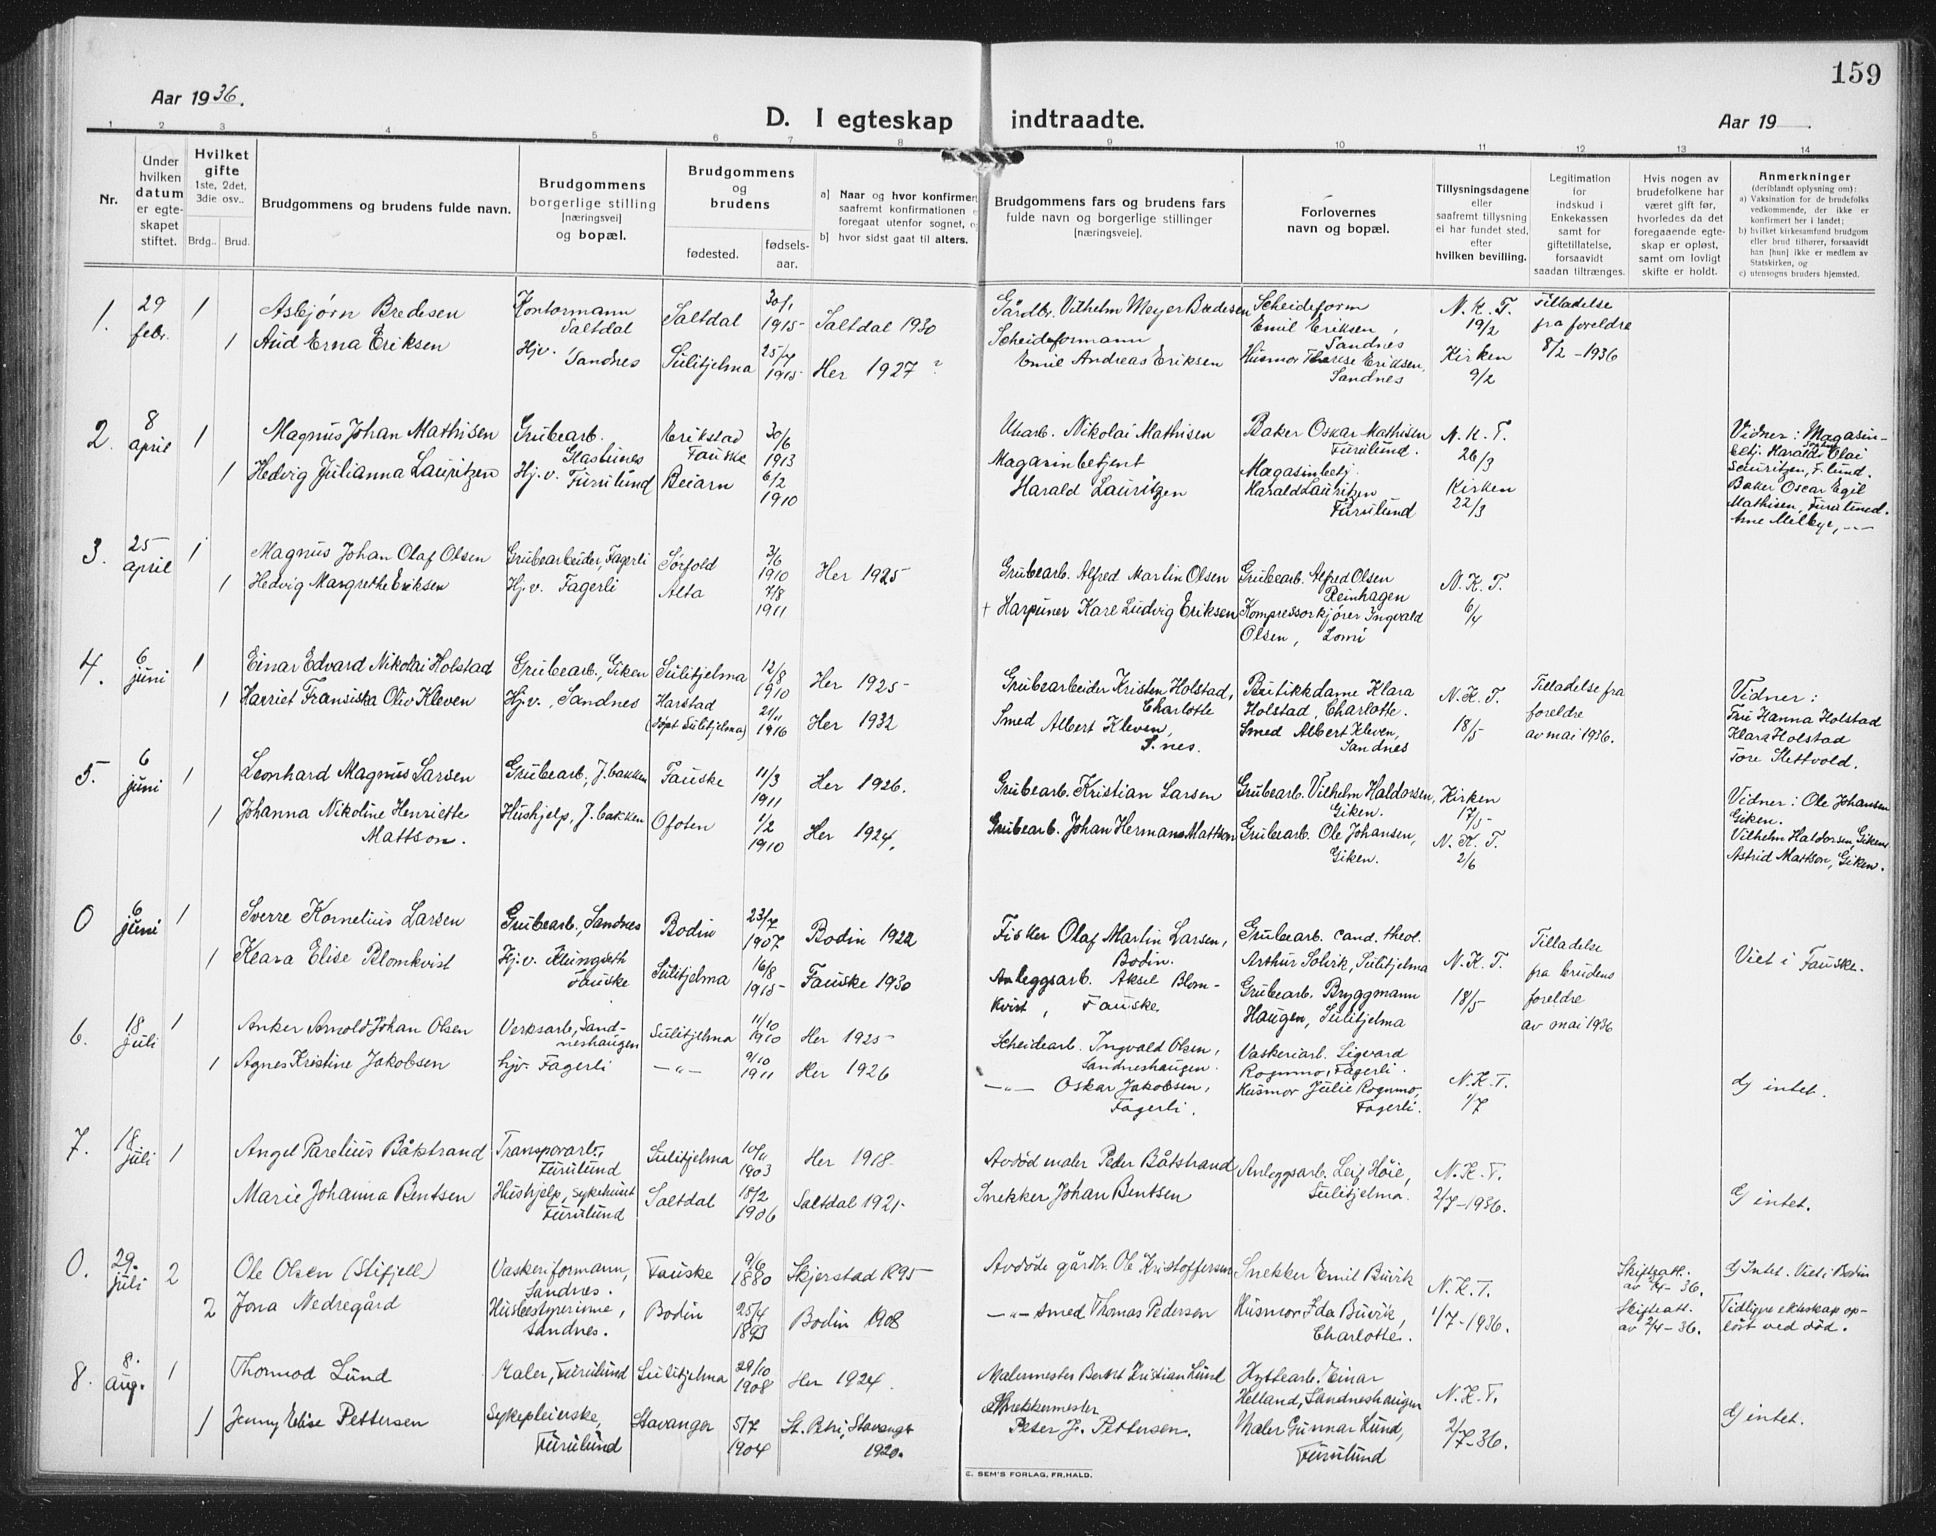 159
Aar 1936.
D. I egteskap indtraadte.
Aar 19
1 2 3 4 5 6 7 8 9 10 11 12 13 14
Nr.
Under hvilken datum er egteskapet stiftet.
Hvilket gifte 1ste, 2det, 3die osv..
Brdg. Brud.
Brudgommens og brudens fulde navn.
Brudgommens borgerlige stilling [næringsvei] og bopæl.
Brudgommens og brudens
fødested. fødselsaar.
a) Naar og hvor konfirmert
saafremt konfirmationen
foregaat utenfor sognet,
b) hvor sidst gaat til alters.
Brudgommens fars og brudens fars fulde navn og borgerlige stillinger [næringsveie].
Forlovernes navn og bopæl.
Tillysningsdagene eller saafremt tillysning ei har fundet sted, efter hvilken bevilling.
Legitimation for indskud i Enkekassen samt for giftetillatelse, forsaavidt saadan tiltrænges.
Hvis nogen av brudefolkene har været gift før, hvorledes da det foregaaende egteskap er opløst, samt om lovligt skifte er holdt.
Anmerkninger
(deriblandt oplysning om):
a) Vaksination for de brudefolks vedkommende, der ikke er konfirmert her i landet;
b) hvilket kirkesamfund brudgom eller brud tilhører, forsaavidt han [hun] ikke er medlem av Statskirken, og
c) utensogns bruders hjemsted.
1. 29 febr. 1 Asbjørn Bredesen Kontormann Saltdal Saltdal 30/1 1915 Saltdal 1930 Gårdbr. Vilhelm Meyer Bredesen Scheideform Emil Eriksen, Sandnes N.K.T. 19/2 Tilladelse fra foreldre 8/2-1936
1 Aud Erna Eriksen Hjv. Sandnes Sulitjelma 25/7 1915 Her 1927 ? Scheideformann Emil Andreas Eriksen Husmor Therese Eriksen, Sandnes Kirken 9/2
2. 8 april 1 Magnus Johan Mathisen Grubearb. Glastunes Erikstad Fauske 30/6 1913 Uharb. Nikolai Mathisen Baker Oskar Mathisen Furulund. N.K.T. 26/3 Vidner: Magasinbetj. Harald Olai Lauritzen, F.lund.
1 Hedvig Julianna Lauritzen Hj.v. Furulund Beiarn 6/2 1910 Magasinbetjent Harald Lauritzen Magasinbetj. Harald Lauritzen Furulund Kirken 22/3 Baker Oscar Egil Mathisen, Furulund. Arne Melbye, -"-
3. 25 april 1 Magnus Johan Olaf Olsen Grubearbeider, Fagerli Sørfold 3/6 1910 Her 1925 Grubearb. Alfred Martin Olsen Grubearb. Alfred Olsen Reinhagen N.K.T. 6/4
1 Hedvig Margrethe Eriksen Hj.v. Fagerli Alta 7/8 1911 + Harpuner Kare Ludvig Eriksen Kompressorkjører Ingvald Olsen, Lomi
4. 6 juni 1 Einar Edvard Nikolai Holstad Grubearb., Giken Sulitjelma 12/8 1910 Her 1925 Grubearbeider Kristen Holstad, Charlotte Butikkdame Klara Holstad, Charlotte. N.K.T. 18/5 Tilladelse fra foreldre av mai 1936. Vidner: Fru Hanna Holstad
1 Harriet Fransiska Oliv Kleven Hj.v., Sandnes Harstad (døpt Sulitjelma) 21/11 1916 Her 1932 Smed Albert Kleven, S.nes. Smed Albert Kleven, Sandnes Klara Holstad Tore Slettvold.
5. 6 juni 1 Leonhard Magnus Larsen Grubearb., J.bakken Fauske 11/3 1911 Her 1926. Grubearb. Kristian Larsen Grubearb. Vilhelm Haldorsen, Giken. Kirken 17/5 Vidner: Ole Johansen Giken.
1 Johanna Nikoline Henriette Mattson. Hushjelp, J.bakken Ofoten 1/2 1910 Her 1924. Grubearb. Johan Herman Mattson Grubearb. Ole Johansen, Giken. N.K.T. 2/6 Vilhelm Haldorsen, Giken Astrid Mattson, Giken.
0 6 juni 1 Sverre Kornelius Larsen Grubearb., Sandnes Bodin 23/7 1907 Bodin 1922 Fisker Olaf Martin Larsen, Bodin. Grubearb. cand. theol. Arthur Solvik, Sulitjelma N.K.T. 18/5 Tilladelse fra brudens foreldre av mai 1936 Viet i Fauske.
1 Klara Elise Blomkvist Hj.v. Klungseth Fauske Sulitjelma 16/8 1915 Fauske 1930 Anleggsarb. Aksel Blomkvist, Fauske Grubearb. Bryggmann Haugen, Sulitjelma
6. 18 juli 1 Anker Arnold Johan Olsen Verksarb., Sandneshaugen Sulitjelma 11/10 1910 Her 1925 Scheidearb. Ingvald Olsen, Sandneshaugen. Vaskeriarb. Sigvard Rognmo, Fagerli. N.K.T. 1/7 Gj intet.
1 Agnes Kristine Jakobsen hjv. Fagerli -"- 9/10 1911 Her 1926 -"- Oskar Jakobsen, Fagerli. Husmor Julie Rognmo, Fagerli.
7. 18 juli 1 Angel Parelius Båtstrand Transportarb., Furulund Sulitjelma 10/11 1903 Her 1918 Avdød maler Peder Båtstrand Anleggsarb. Leif Høie, Sulitjelma. N.K.T. 2/7-1936.
Marie Johanna Bentsen Hushjelp, Sykehuset Furulund Saltdal 18/2 1906 Saltdal 1921 Snekker Johan Bentsen Gj intet.
0. 29. juli 2 Ole Olsen (Stifjell) Vaskeriformann, Sandnes. Fauske 9/6 1880 Skjerstad 1895 Avdøde gårdbr. Ole Kristoffersen Snekker Emil Buvik N.K.T. 1/7-1936. Skifteatt. av 2/4-36. Gj intet. Viet i Bodin
2 Jona Nedregård Husbestyrerinne, Sandnes. Bodin 25/4 1893 Bodin 1908 -"- smed Thomas Pedersen Husmor Ida Buvik, Charlotte. Skifteatt. av 2/4-36. Tidligere ekteskap opløst ved død.
8. 8. aug. 1 Thormod Lund Maler, Furulund Sulitjelma 29/10 1908 Her 1924. Malermester Berket Kristian Lund Hyttearb. Einar Helland, Sandneshaugen N.K.T. 2/7-36. Gj intet.
1 Jenny Elise Pettersen Sykepleierske, Furulund Stavanger 5/7 1904 St. Petri, Stavanger 1920. Snekkermester Peter J. Pettersen. Maler Gunnar Lund, Furulund
E. SEM'S FORLAG, FR.HALD.